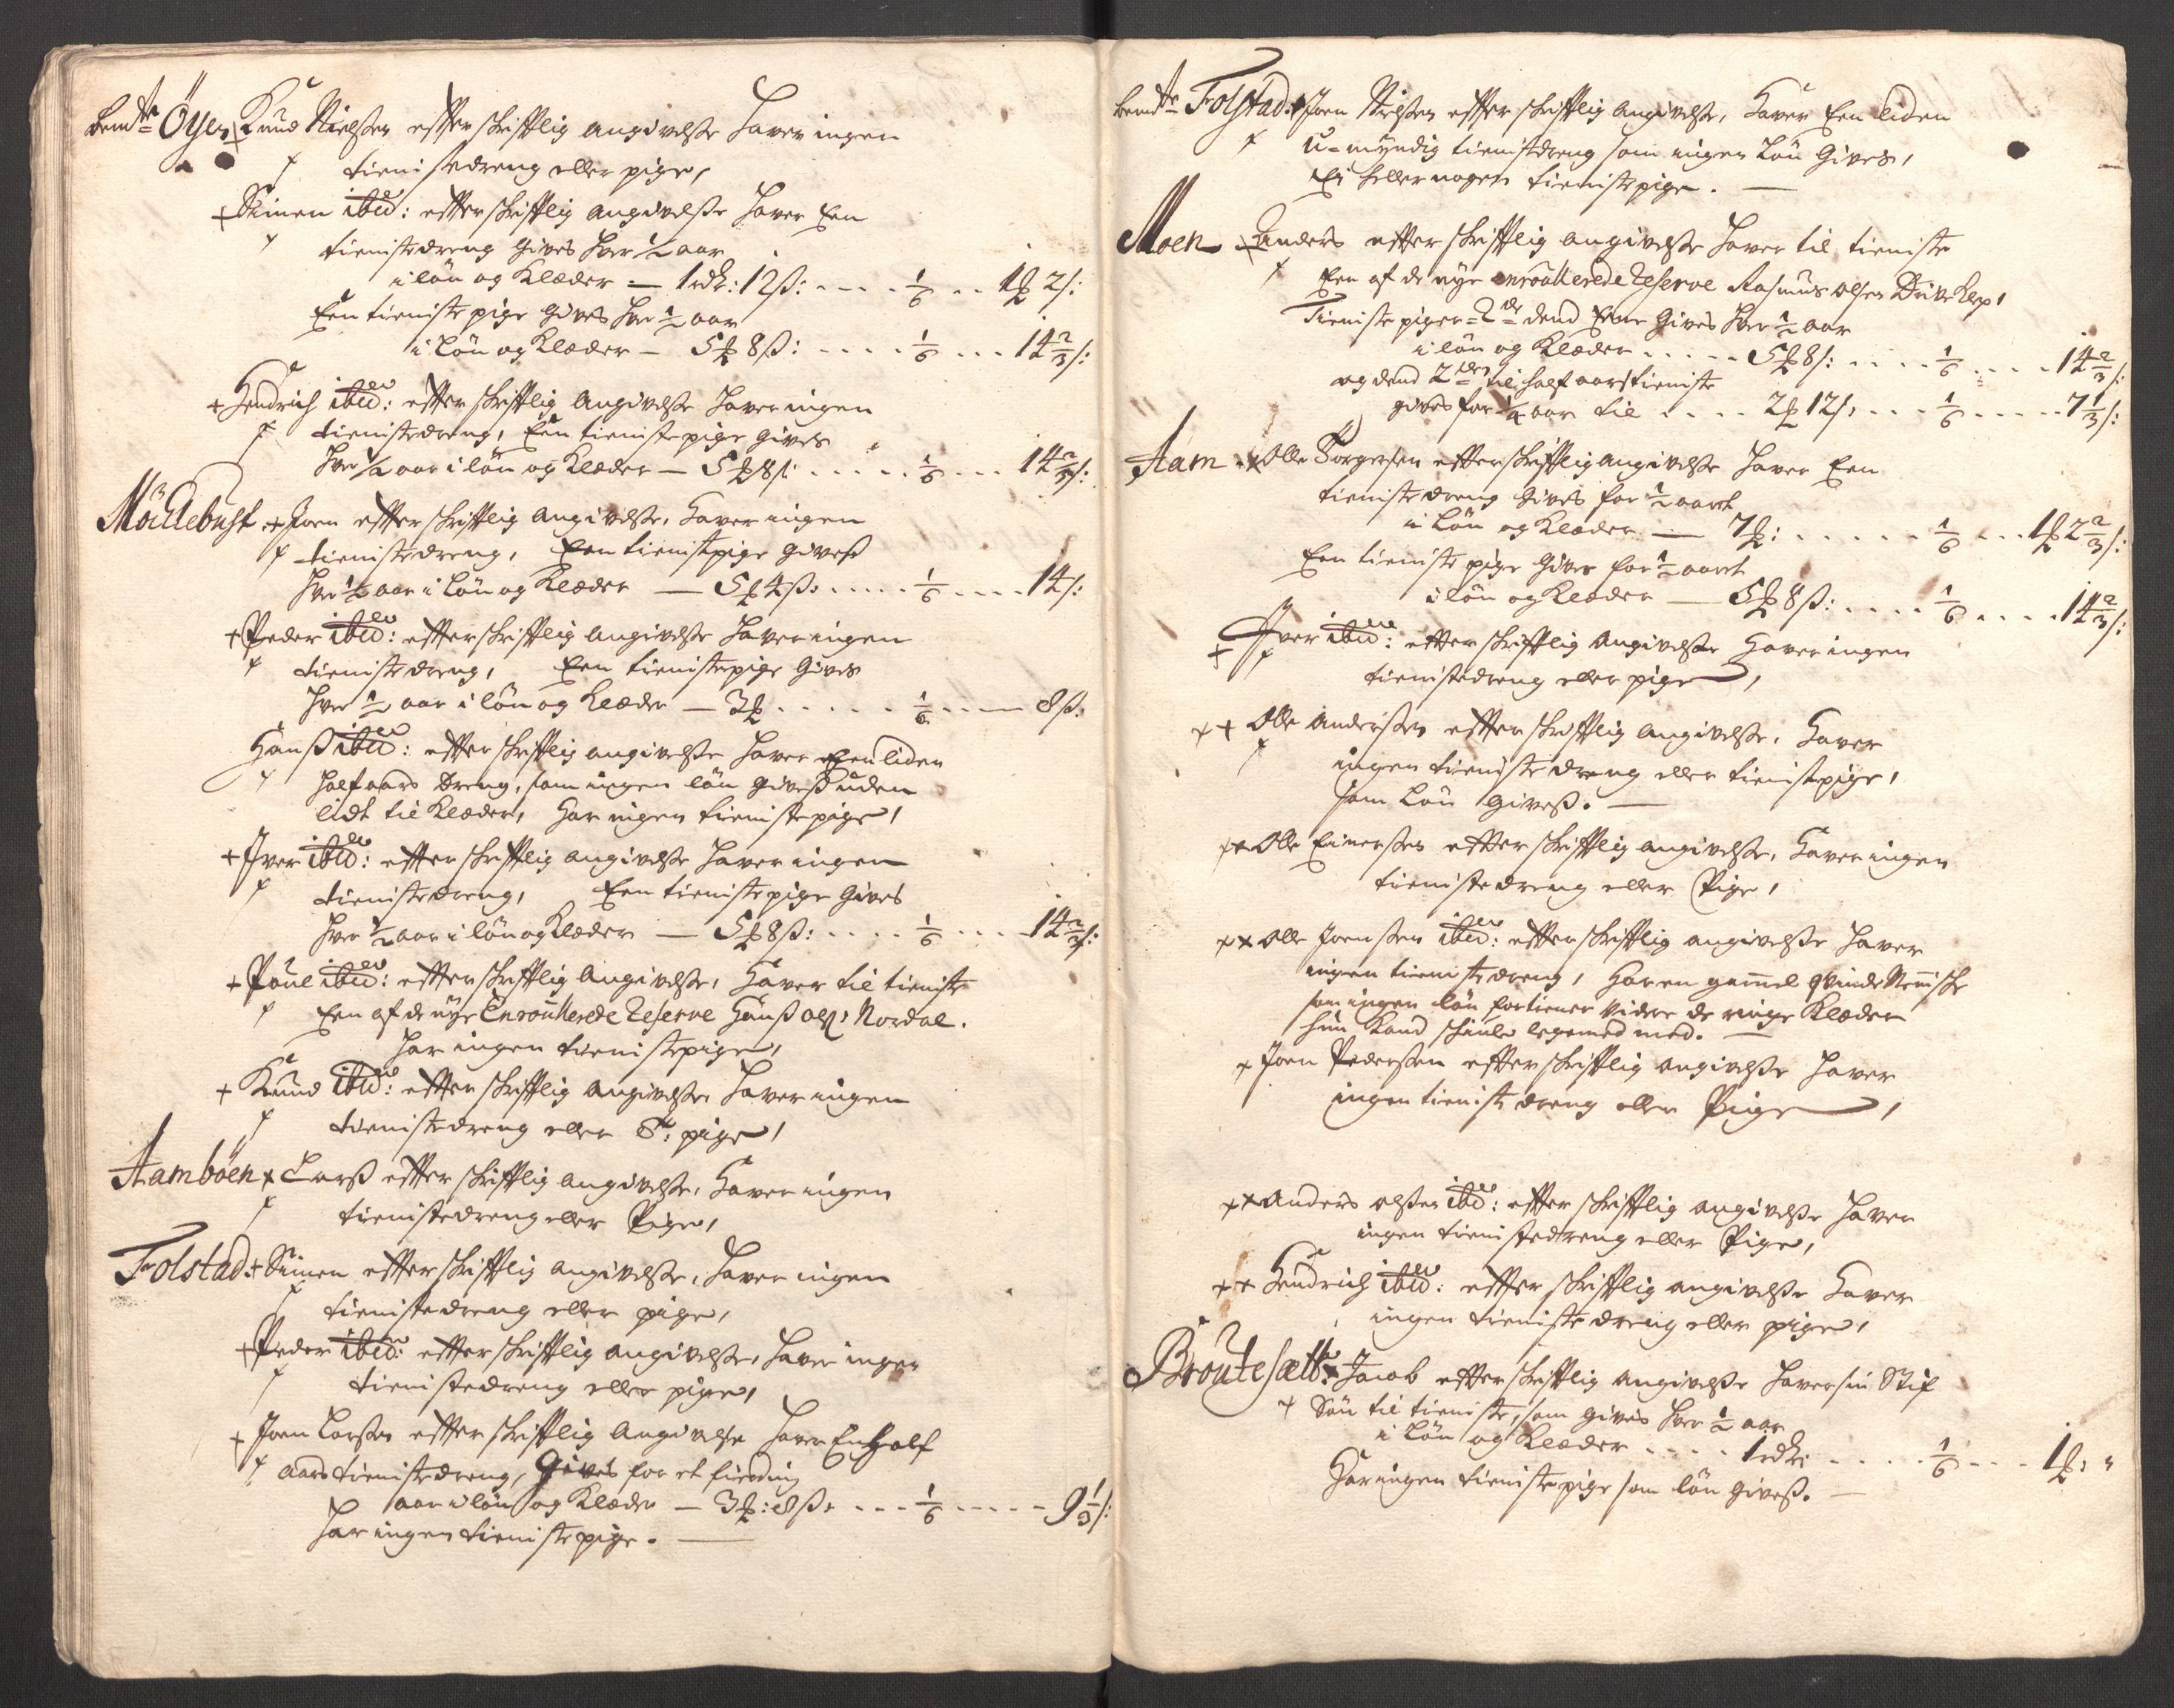 bemte Öyen + Knud Nielsen effter skrifftlig angivelse haver ingen
tienistedreng eller pige,
+ Simen ibid: effter skrifftlig angivelse haver Een
tienistedreng gives hver ½ aar
i lön og Klæder — 1 rdr: 12 ß: .... 1/6 .. 1 ₰ 2 s:
Een tieniste pige gives hver ½ aar
i Lön og Klæder — 5 ₰ 8 ß: .... 1/6 ... 14 2/3 s:
+ Hendrich ibid: effter skrifftlig angivelse haver ingen
tienistedreng, Een tienistepige gives
hver ½ aar i lön og Klæder — 5 ₰ 8 s: .... 1/6 ... 14 2/3 s:
Möcklebust + Joen effter skrifftlig angivelse, haver ingen
tienistedreng, Een tienistpige givess
hver ½ aar i Lön og Klæder — 5 ₰ 4 ß: .... 1/6 .... 14 s:
+ Peder ibid: effter skrifftlig angivelse haver ingen
tienistedreng, Een tienistepige gives
hver ½ aar i lön og Klæder — 3 ₰ ..... 1/6 .... 8 ß:
Hanss ibid: effter skrifftlig angivelse haver Een liden
halfaars dreng, som ingen lön givess uden
lidt til Klæder, har ingen tienistepige,
+ Iver ibid: effter skrifftlig angivelse haver ingen
tienistedreng, Een tienistepige gives
hver ½ aar i lön og Klæder — 5 ₰ 8 ß: .... 1/6 .... 14 2/3 s:
+ Poul ibid: effter skrifftlig angivelse, haver til tieniste
Een af de nye Enroullerede Reserve Hanss ols: Nordal.
har ingen tienistepige,
+ Knud ibid: effter skrifftlig angivelse haver ingen
tienistedreng eller T: pige,
Aamböen + Larss effter skrifftlig angivelse, haver ingen
tienistedreng eller Pige,
Folstad: + Simen effter skrifftlig angivelse, haver ingen
tienistedreng eller pige,
+ Peder ibid: effter skrifftlig angivelse, haver ingen
tienistedreng eller pige,
+ Joen Larsen effter skrifftlig angivelse haver En half
aars tienistedreng, Gives for et fierding
aar i lön og Klæder — 3 ₰: 8 ß: ... 1/6 ..... 9 1/3 s:
har ingen tienistepige. —
bemte Folstad: + Joen Nielsen effter skrifftlig angivelse, haver Een liden
u-myndig tienistdreng som ingen Lön Gives,
Ej heller nogen tienistepige. —
Moen + Anders effter skrifftlig angivelse haver til tieniste
Een af de nye enroullerede Reserve Rasmus olsen
Tienistepiger = 2de dend Eene Gives hver ½ aar
i lön og Klæder ..... 5 ₰ 8 s: .... 1/6 .... 14 2/3 s:
og dend 2den til half aars tieniste
gives for ¼ aar til .... 2 ₰ 12 s: ... 1/6 ..... 7 1/3 s:
Aam + Olle Torgersen effter skrifftlig angivelse haver Een
tienistedreng gives for ½ aaret
i Lön og Klæder — 7 ₰: ...... 1/6 ... 1 ₰ 2 2/3 s:
Een tieniste pige Gives for ½ aaret
i lön og Klæder — 5 ₰ 8 ß: .... 1/6 .... 14 2/3 s:
+ Iver ibid: effter skrifftlig angivelse haver ingen
tienistedreng eller pige,
++ Olle Andersen effter skrifftlig angivelse, haver
ingen tienistedreng eller tienistpige,
som Lön givess. —
++ Olle Einersen effter skrifftlig angivelse, haver ingen
tienistedreng eller Pige,
++ Olle Joensen ibid: effter skrifftlig angivelse haver
ingen tienistedreng, har en gammel qvinde Menische
som ingen lön fortiener videre de ringe Klæder
hun Kand skiule legemed med. —
+ Joen Pedersen effter skrifftlig angivelse haver
ingen tienistedreng eller Pige,
++ Anders olsen ibid: effter skrifftlig angivelse haver
ingen tienistedreng eller Pige,
++ Hendrich ibid: effter skrifftlig angivelse haver
ingen tienistedreng eller pige,
Broutesætt: + Jacob effter skrifftlig angivelse haver sin Stif
Sön til tieniste, som gives hver ½ aar
i Lön og Klæder .... 1 rdr: .... 1/6 ... 1 ₰: "
Har ingen tienistepige som lön givess. —